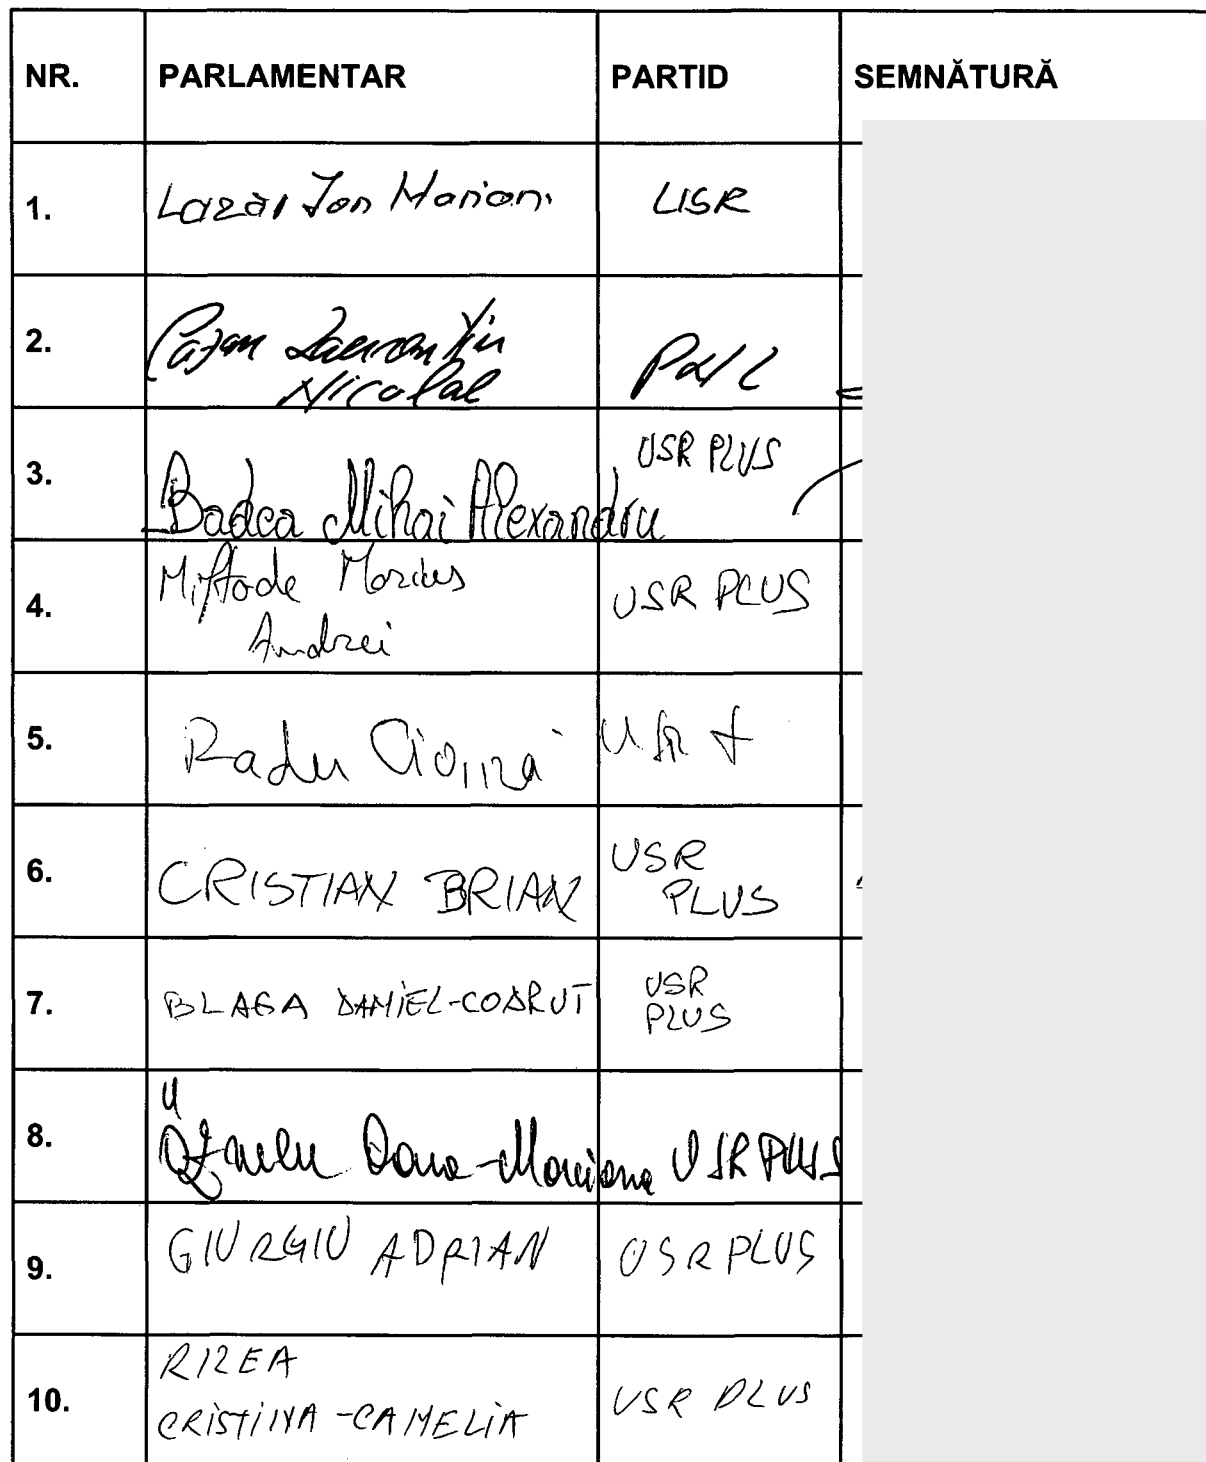 NR. PARLAMENTAR PARTID SEMNĂTURĂ
1. Lazăr Ion Marian USR
2. Laurențiu PNL
Nicolae
3. Badea Mihai Alexandru USR PLUS
4. Miftode Marius USR PLUS
Andrei
5. Radu Ciornă USR +
6. CRISTIAN BRIAN USR
PLUS
7. BLAGA DANIEL-CODRUT USR
PLUS
8. Oana-Marciana USR PLUS
9. GIURGIU ADRIAN USR PLUS
10. RIZEA
CRISTINA-CAMELIA USR PLUS